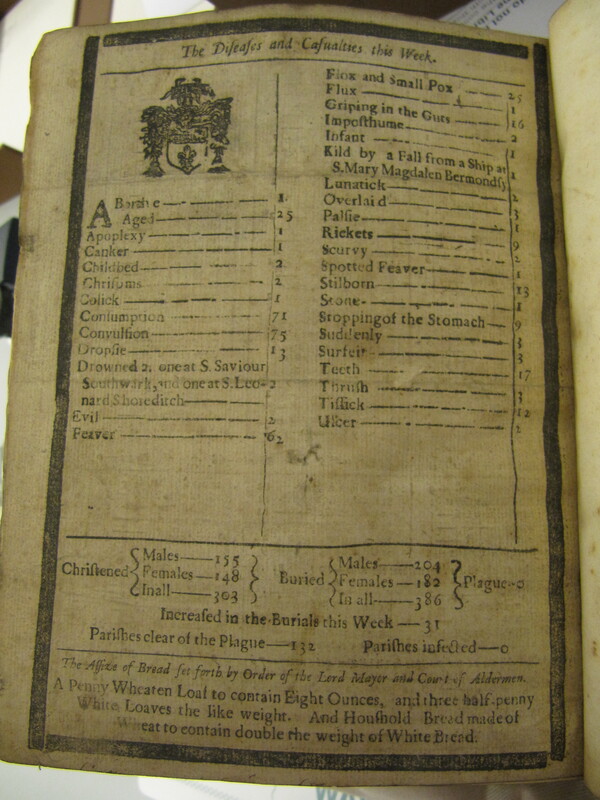 The Diſeaſes and Caſualties this Week.
ABortive — 1
Aged — 25
Apoplexy — 1
Canker — 1
Childbed — 2
Chriſoms — 2
Colick — 1
Conſumption — 71
Convulſion — 75
Dropſie — 13
Drowned 2, one at S. Saviour
Southwark, and one at S. Leo- 2
nard Shoreditch —
Evil — 2
Feaver — 62
Flox and Small Pox — 25
Flux — 1
Griping in the Guts — 16
Impoſthume — 2
Infant — 1
Kild by a Fall from a Ship at
S. Mary Magdalen Bermondſy 1
Lunatick —
Overlaid — 3
Palſie — 1
Rickets — 9
Scurvy — 2
Spotted Feaver — 1
Stilborn — 13
Stone — 1
Stopping of the Stomach — 9
Suddenly — 3
Surfeit — 3
Teeth — 17
Thruſh — 3
Tiſſick — 12
Ulcer — 2
Chriſtened { Males — 155
Females — 148
In all — 303 }
Buried { Males — 204
Females — 182
In all — 386 } Plague — 0
Increaſed in the Burials this Week — 31
Pariſhes clear of the Plague — 132 Pariſhes infected — 0
The Aſſize of Bread ſet forth by Order of the Lord Mayor and Court of Aldermen.
A Penny Wheaten Loaf to contain Eight Ounces, and three half-penny
White Loaves the like weight. And Houſhold Bread made of
Wheat to contain double the weight of White Bread.